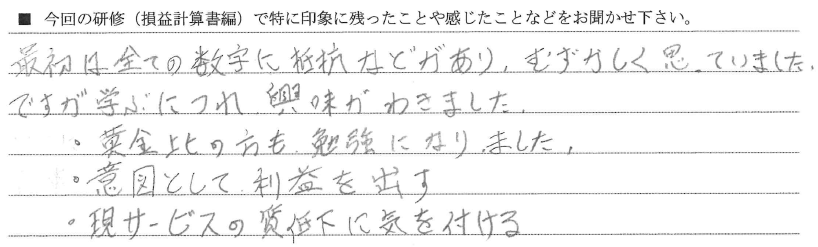 ■ 今回の研修（損益計算書編）で特に印象に残ったことや感じたことなどをお聞かせ下さい。
最初は全ての数字に抵抗などがあり、むずかしく思っていました、
ですが学ぶにつれ興味がわきました、
・黄金比の方も勉強になりました、
・意図として利益を出す
・現サービスの質低下に気を付ける